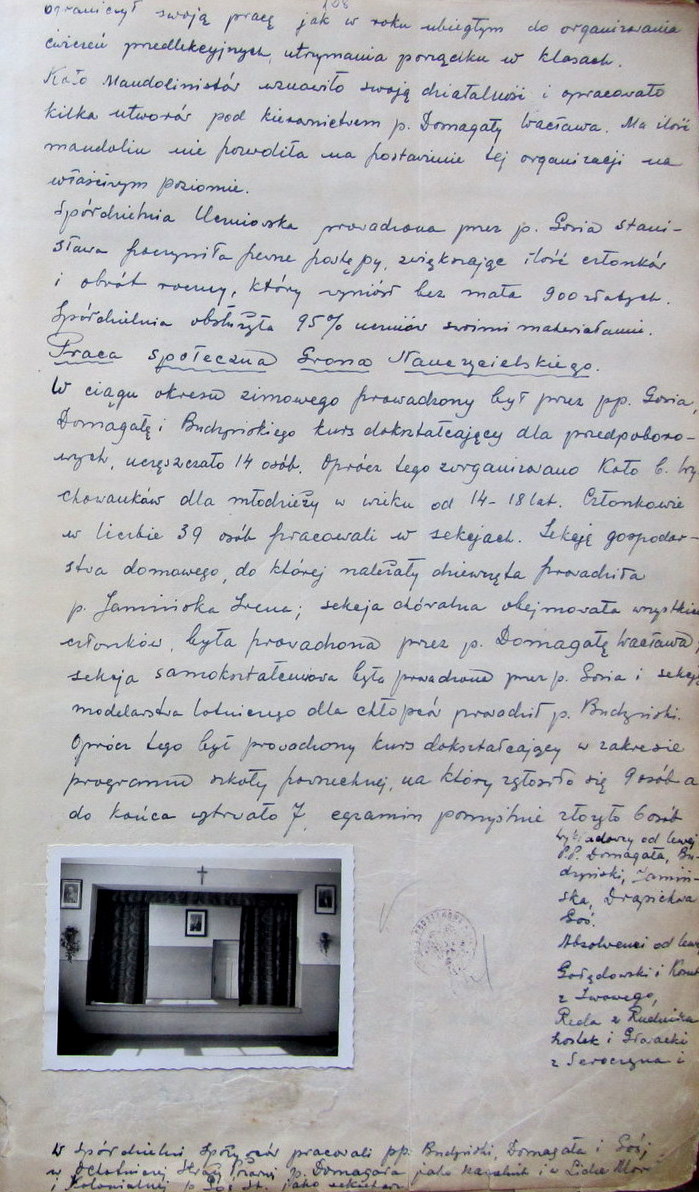 108
ograniczył swoją pracę jak w roku ubiegłym do organizowania
ćwiczeń przedlekcyjnych, utrzymania porządku w klasach.
Koło Mandolinistów wznowiło swoją działalność i opracowało
kilka utworów pod kierownictwem p. Domagały Wacława. Ma ilość
mandolin nie pozwoliła na postawienie tej organizacji na
właściwym poziomie.
Spółdzielnia Uczniowska prowadzona przez p. Gosia Stani-
sława poczyniła pewne postępy, zwiększając ilość członków
i obrót roczny, który wyniósł bez mała 900 złotych.
Spółdzielnia obsłużyła 95% uczniów swoimi materiałami.
Praca społeczna Grona Nauczycielskiego.
W ciągu okresu zimowego prowadzony był przez pp. Gosia,
Domagałę i Budzyńskiego kurs dokształcający dla przedpoboro-
wych, uczęszczało 14 osób. Oprócz tego zorganizowano Koło b. Wy
chowanków dla młodzieży w wieku od 14-18 lat. Członkowie
w liczbie 39 osób pracowali w sekcjach. Sekcję gospodar-
stwa domowego, do której należały dziewczęta prowadziła
p. Jamińska Irena; sekcja chóralna obejmowała wszystkich
członków, była prowadzona przez p. Domagałę Wacława,
sekcja samokształceniowa była prowadzona przez p. Gosia i sekcję
modelarstwa lotniczego dla chłopców prowadził p. Budzyński.
Oprócz tego był prowadzony kurs dokształcający w zakresie
programu szkoły powszechnej, na który zgłosiło się 9 osób a
do końca wytrwało 7, egzamin pomyślnie złożyło 6 osób
Wykładowcy od lewej
P.P. Domagała, Bu-
dzyński, Jamiń-
ska,
Goś.
Absolwenci od lewej
i
z Iwowego,
Reda z Rudnika
i Głowacki
z Seroczyna i
W Spółdzielni Spożywców pracowali pp. Budzyński, Domagała i Goś,
w Ochotniczej Straży Pożarnej p. Domagała jako naczelnik i w Lidze Mors
i Kolonialnej p. Goś St. jako sekretarz